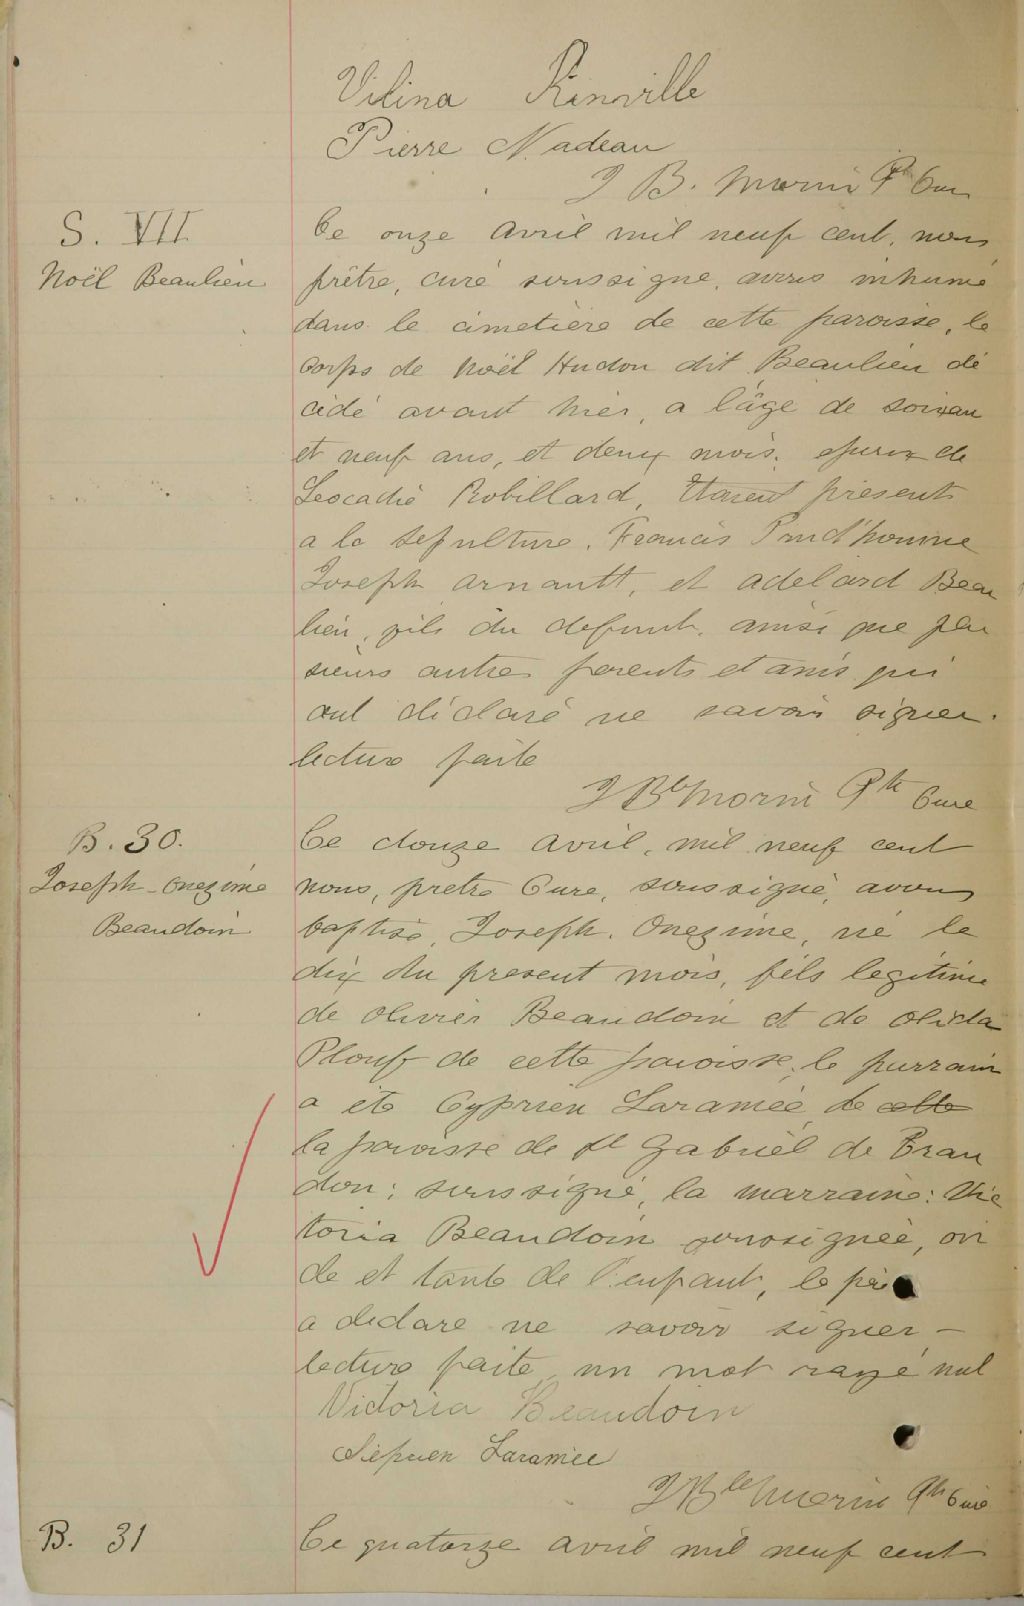 Vilina Rainville
Pierre Nadeau
J B. Morin Ptr Cure
S. VII
Noël Beaulieu
Ce onze avril mil neuf cent, nous
prêtre, curé soussigne, avons inhumé
dans le cimetière de cette paroisse, le
corps de Noël Hudon dit Beaulieu dé
cédé avant hier, a l'âge de soixan
et neuf ans, et deux mois, epoux de
Leocadie Robillard, Etaient présents
a la sepulture. Francis Prud'homme
Joseph Arnautt, et adelard Beau
lieu, fils du defunt, ainsi que plu
sieurs autres parents et amis qui
ont déclaré ne savoir signer.
lecture faite
J Bte Morin Ptr Cure
B. 30.
Joseph-Onezime
Beaudoin
Ce douze avril, mil neuf cent
nous, pretre Cure, soussigné, avons
baptisé, Joseph. Onezime, né le
dix du present mois, fils legitime
de olivier Beaudoin et de olida
Plouf de cette paroisse, le parrain
a été Cyprien Laramée, de cette
la paroisse de st Gabriel de Bran
don; soussigné, la marraine: Vic
toria Beaudoin soussignée, on
cle et tante de l'enfant, le père
a declare ne savoir signer -
lecture faite, un mot rayé nul
Victoria Beaudoin
Sieprien Laramée
J Bte Morin Ptr Curé
B. 31
Ce quatorze avril mil neuf cent